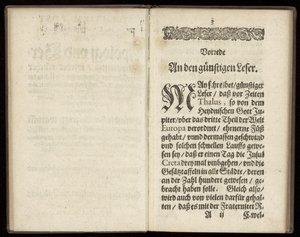 Vorrede
An den günstigen Leser.
MAn schreibet/günstiger
Leser/ daß vor Zeiten
Thalus, so von dem
Heydnischen Gott Ju-
piter/ vber das dritte Theil der Welt
Europa verordnet/ ehrnerne Füß
gehabt/ vnnd dermassen geschwind
vnd solchen schnellen Lauffs gewe-
sen sey/ daß er einen Tag die Insul
Creta drey mal vmbgehen/ vnd die
Gesätztaffeln in alle Städte/ deren
an der Zahl hundert gewesen/ ge-
bracht haben solle. Gleich also/
wird auch von vielen darfür gehal-
ten/ daß es mit der Fraternitet R.
A ij